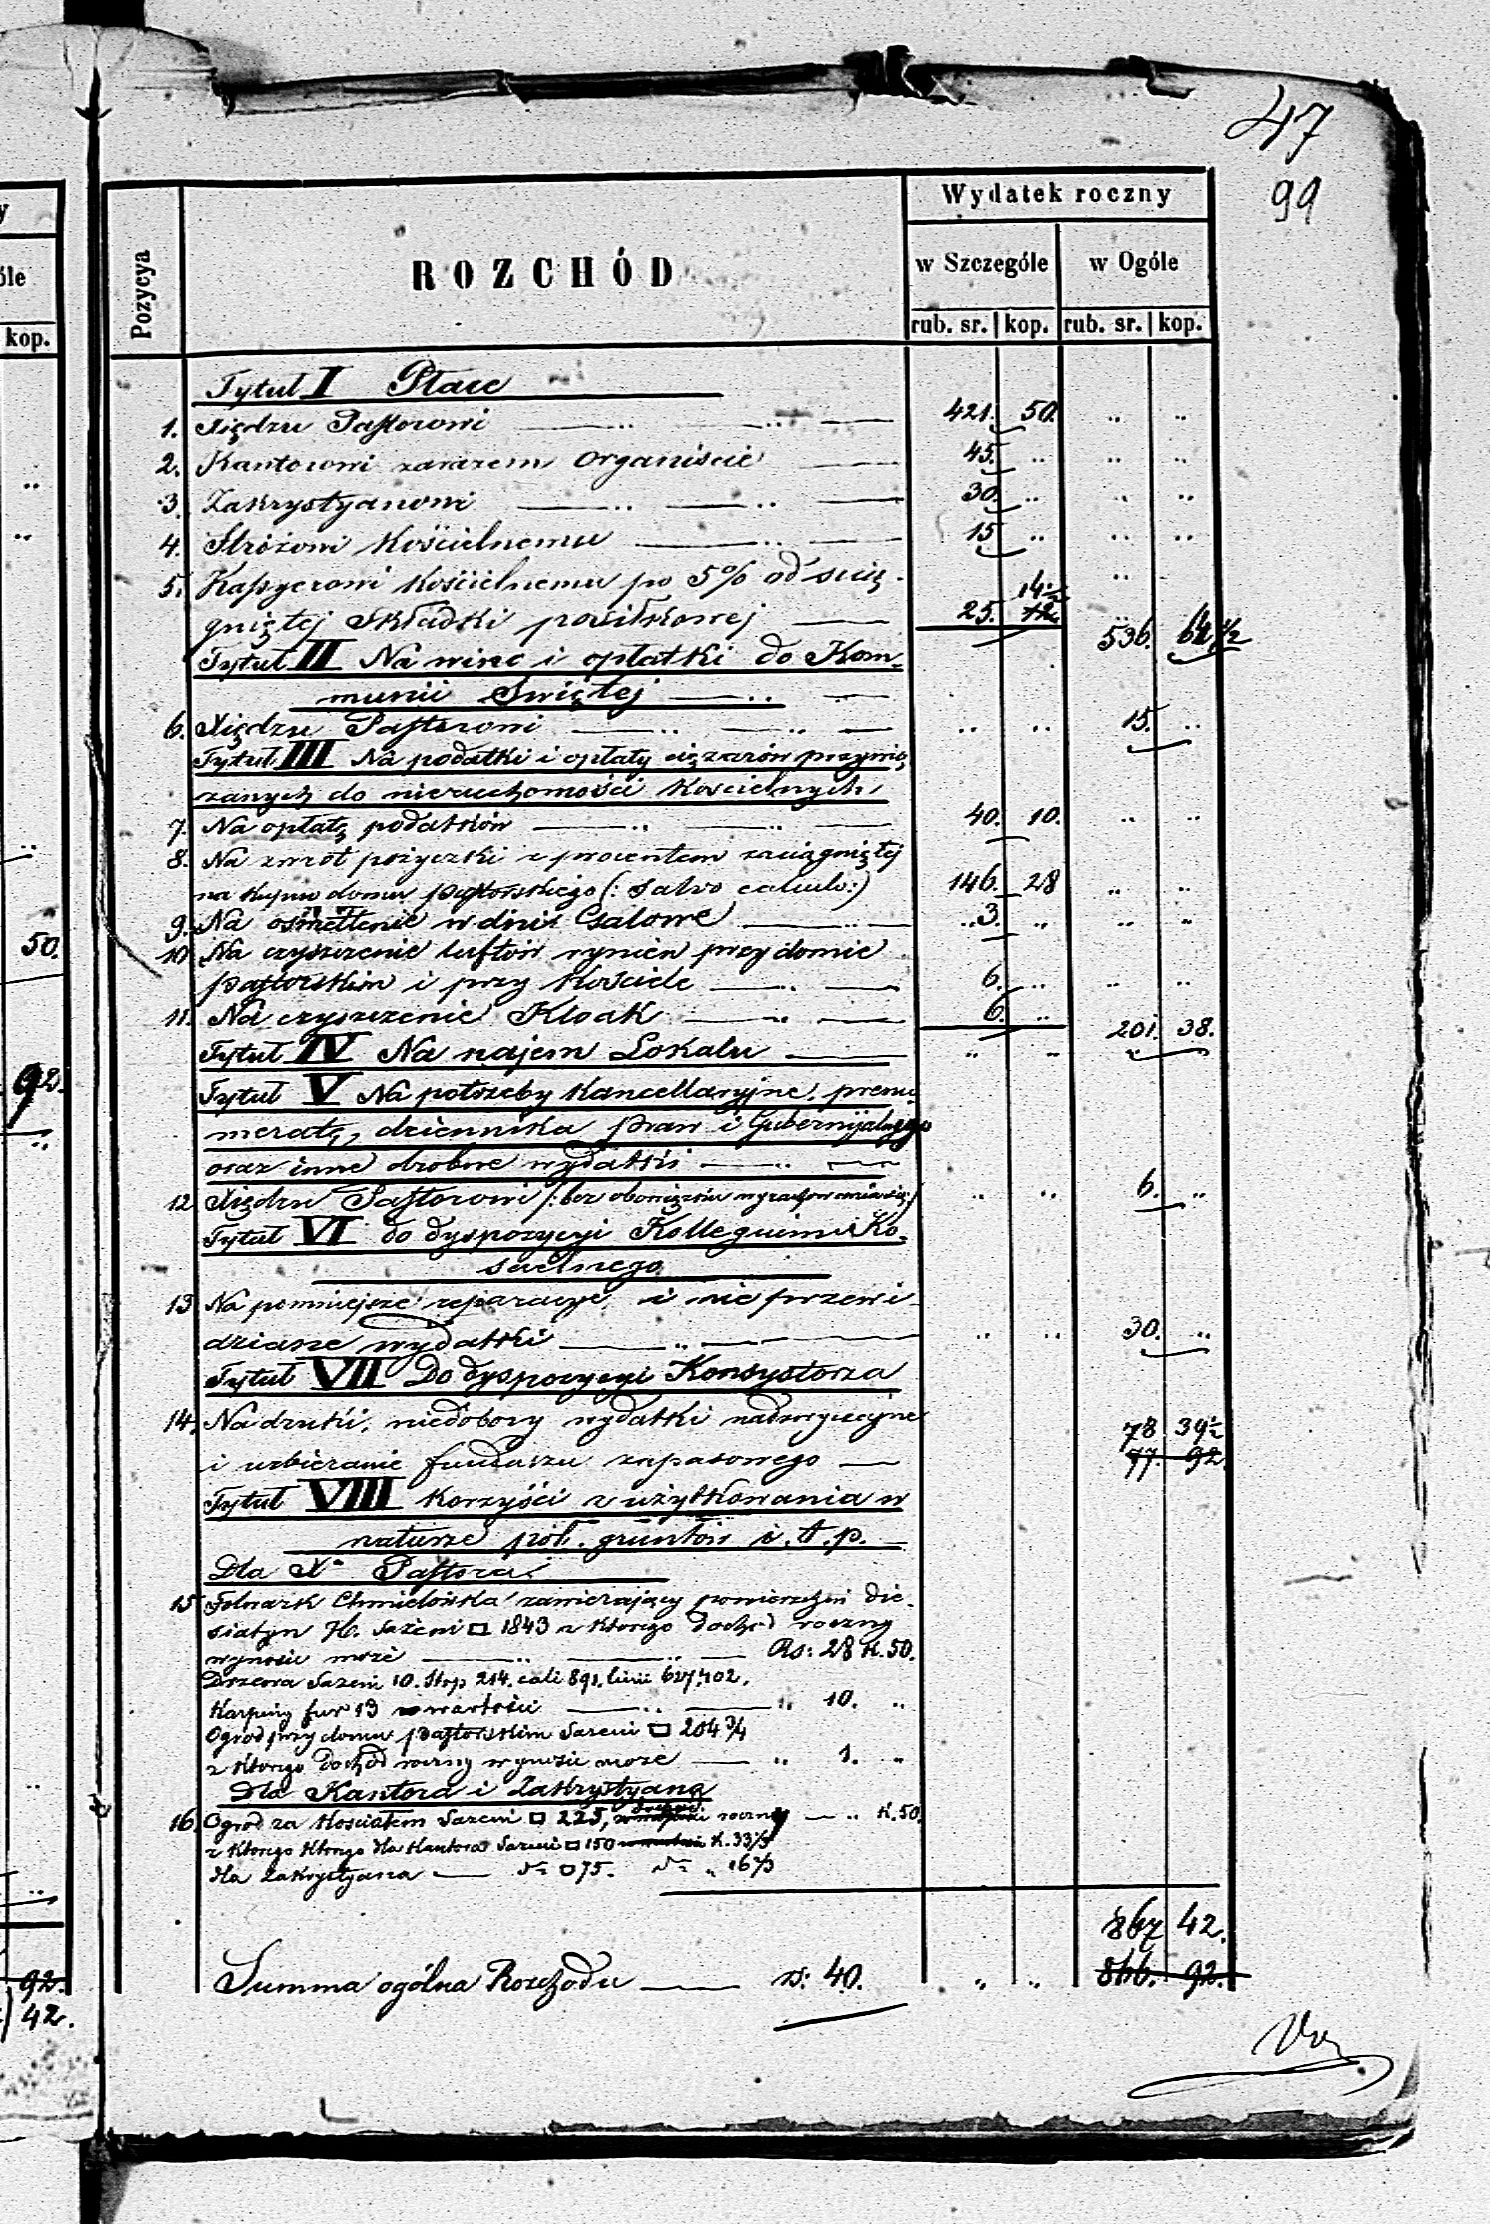 47
99
Pozycya
ROZCHÓD
Wydatek roczny
w Szczególe w Ogóle
rub. sr. kop. rub. sr. kop.
Tytuł I Płace
1. Xiędzu Pastorowi 421. 50. " "
2. Kantorowi zarazem Organiście 45. " " "
3. Zakrystyanowi 30. " " "
4. Stróżowi Kościelnemu 15 " " "
5. Kassyerowi Kościelnemu po 5% od ścią- "
gniętej Składki posiłkowej 25. 14½ 12 536. 64½
Tytuł II Na wino i opłatki do Kom-
munii Swiętej
6. Xiędzu Pastorowi " " 15. "
Tytuł III Na podatki i opłaty ciężarów przywią
zanych do nieruchomości Kościelnych
7. Na opłatę podatków 40. 10. " "
8. Na zwrót pożyczki z procentem zaciągniętej
na kupno domu pastorskiego (: Salvo calculo:) 146. 28 " "
9. Na oświetlenie w dni Galowe " 3. " " "
10 Na czyszczenie luftów rynien przy domie
pastorskim i przy Kościele 6. " " "
11. Na czyszczenie Kloak 6. " 201. 38.
Tytuł IV Na najem Lokalu " " "
Tytuł V Na potrzeby Kancellaryjne, prenu
meratę, dziennika praw i Gubernijalnego
oraz inne drobne wydatki
12 Xiędzu Pastorowi (: bez obowiązku wyrachowania się:) " " 6. "
Tytuł VI do dyspozycyi Kollegium Ko-
scielnego
13 Na pomniejsze reparacye i nie przewi-
dziane wydatki " " 30. "
Tytuł VII Do dyspozycyi Konsystorza
14. Na druki, niedobory wydatki nadzwyczajne 78 39½
i uzbieranie funduszu zapasowego 77. 92.
Tytuł VIII Korzyści z użytkowania w
naturze pól, gruntów i. t. p.
Dla X. Pastora
15 Folwark Chmielówka zawierający powierzchni die-
siatyn sażeni □ 1843 z którego dochód roczny
wynosić może Rs: 28 k. 50.
Drzewa Sażeni 10. Stop 214. cali 891. linii 627,402.
Karpiny fur 13 wartości " 10. "
Ogród przy domu pastorskim Sażeni □ 204¾
z którego dochód roczny wynosić może " 1. "
Dla Kantora i Zakrystyana
16. Ogród za Kościołem Sażeni □ 225, roczny " k. 50.
z którego dla Kantora Sażeni □ 150 k. 33⅓
dla Zakrystyana □ 75. " 16⅔
867 42.
Summa ogólna Rozchodu rs: 40. " " 866. 92.
50.
92.
92.
42.
kop.